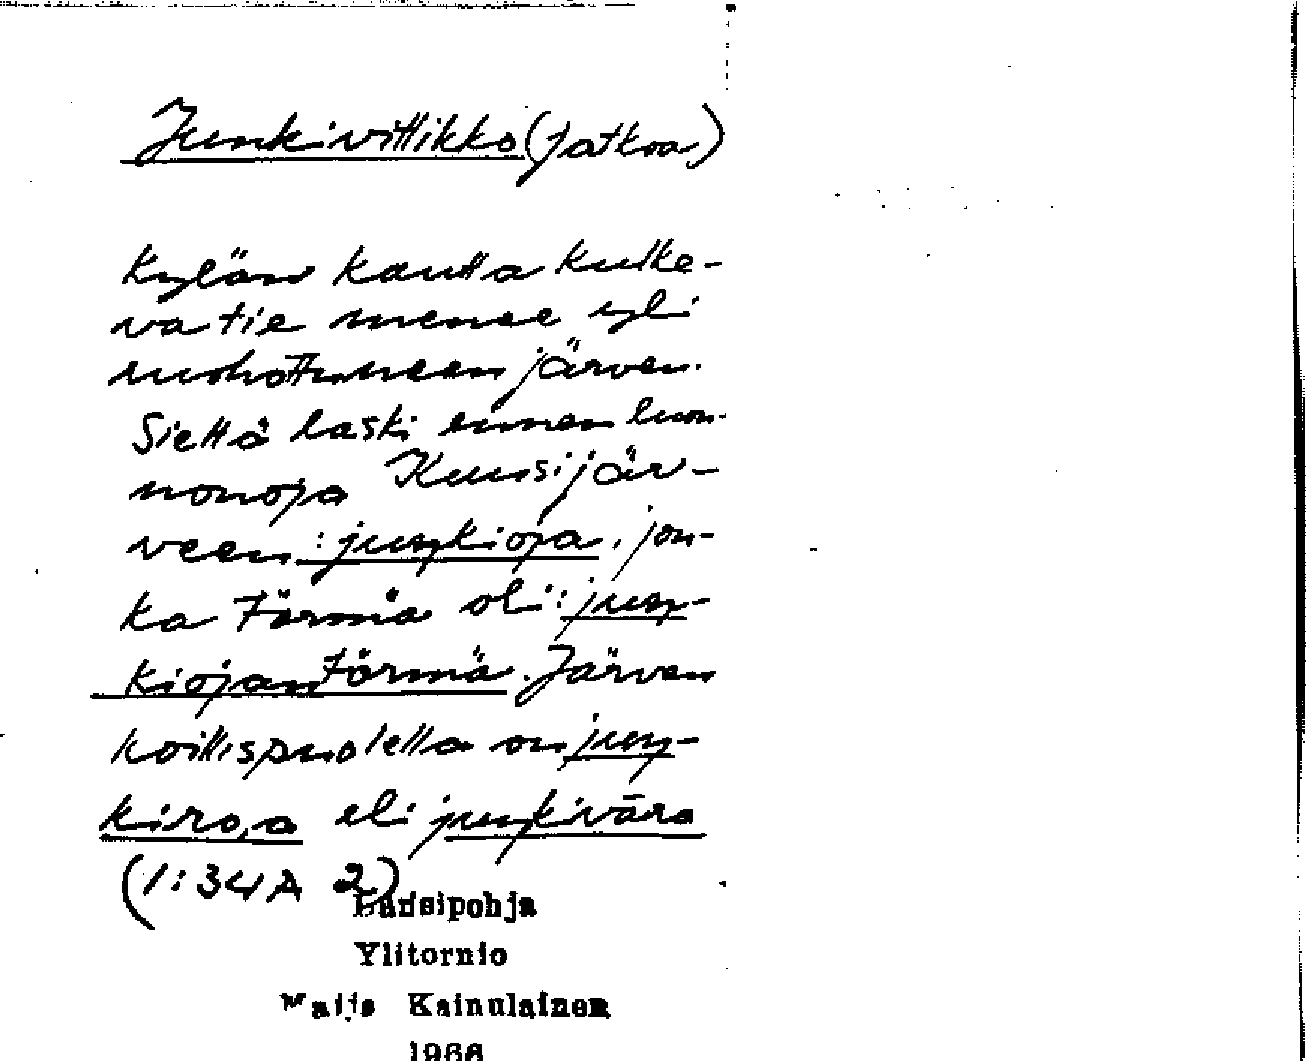 Junkivittikko (jatkoa)
Kylän kautta kulke-
va tie menee yli
ruohottuneen järven.
Sieltä laski ennen luon-
nonoja Kuusijär-
veen : juŋkioja, jon-
ka törmä oli : juŋ-
kiojantörmä. Järven
koillispuolella on juŋ-
kirova eli juŋkivāra
(1:34A 2)
Ylitornio
Maija Kainulainen
1966